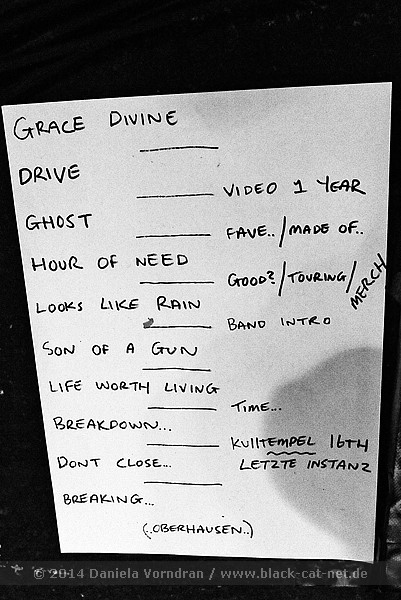 GRACE DIVINE
DRIVE
VIDEO 1 YEAR
GHOST
FAVE../MADE OF..
HOUR OF NEED
GOOD?/TOURING/MERCH
LOOKS LIKE RAIN
BAND INTRO
SON OF A GUN
LIFE WORTH LIVING
TIME...
BREAKDOWN...
KULTTEMPEL 16TH
DONT CLOSE...
LETZTE INSTANZ
BREAKING...
(.OBERHAUSEN..)
© 2014 Daniela Vorndran / www.black-cat-net.de